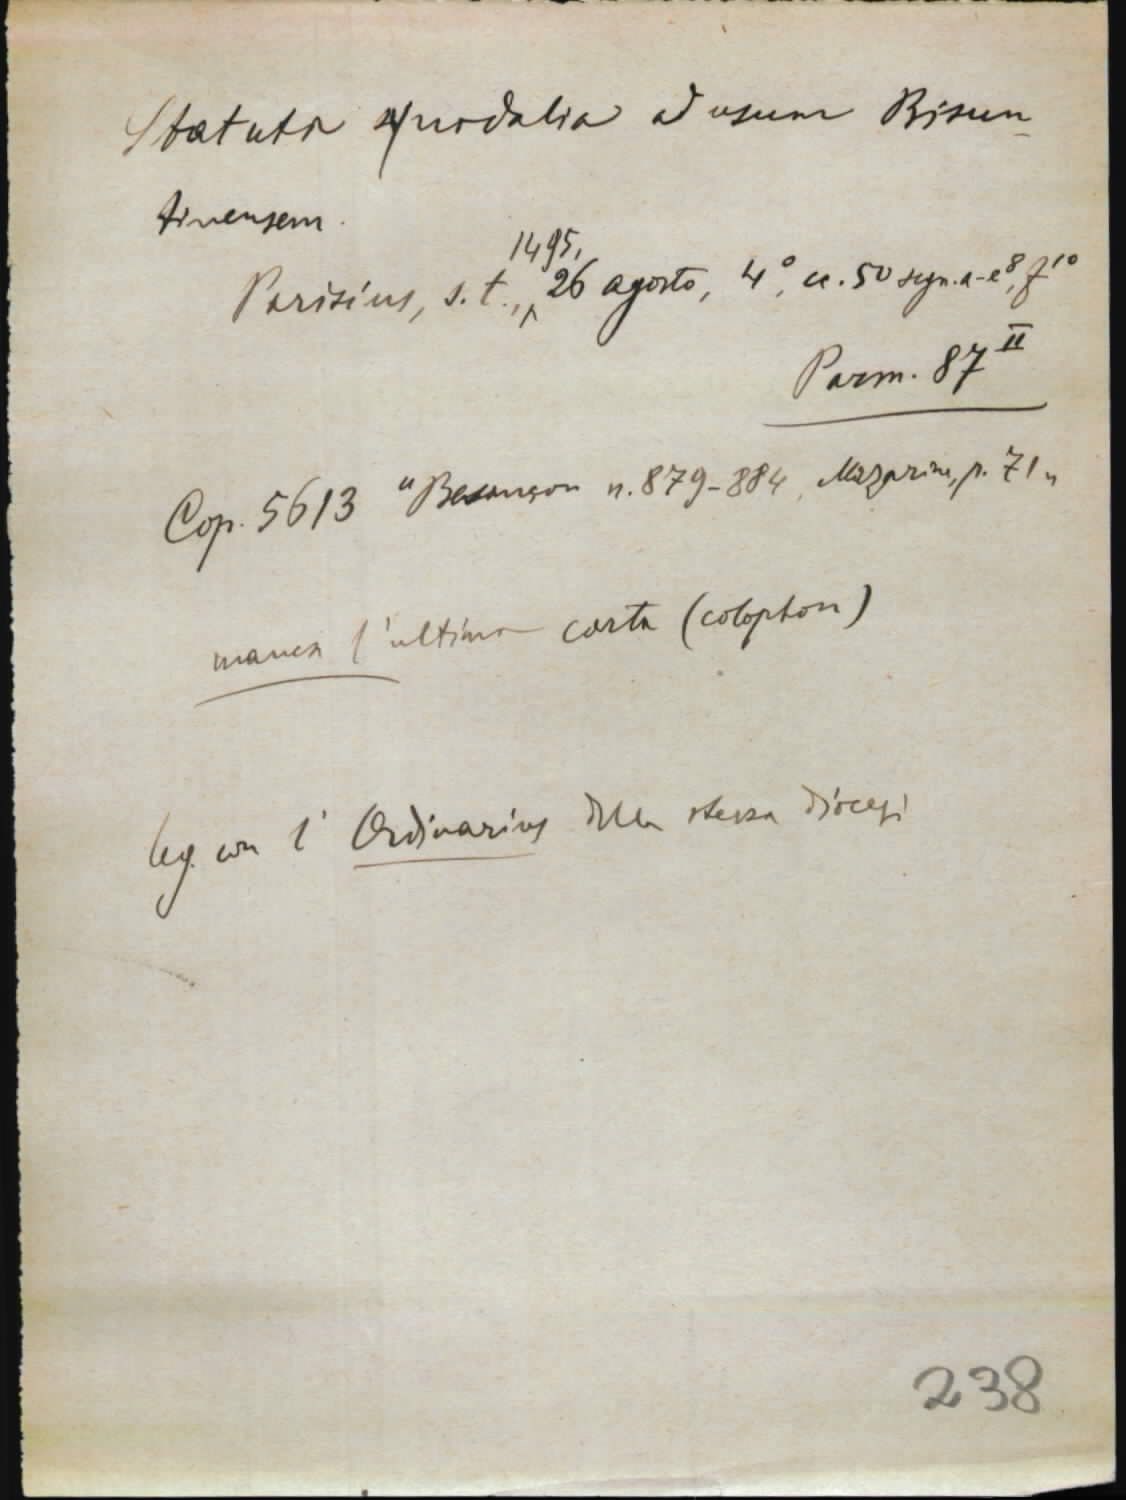 Statuta synodalia ad usum Bisun-
tinensem.
Parisius, s. t., 1495, 26 agosto, 4°, cc. 50 segn. a-e⁸, f¹⁰
Parm. 87 II
Cop. 5613 "Besançon n. 879-884, Mazarine, p. 71"
manca l'ultima carta (colophon)
leg. con l' Ordinarius della stessa diocesi
238